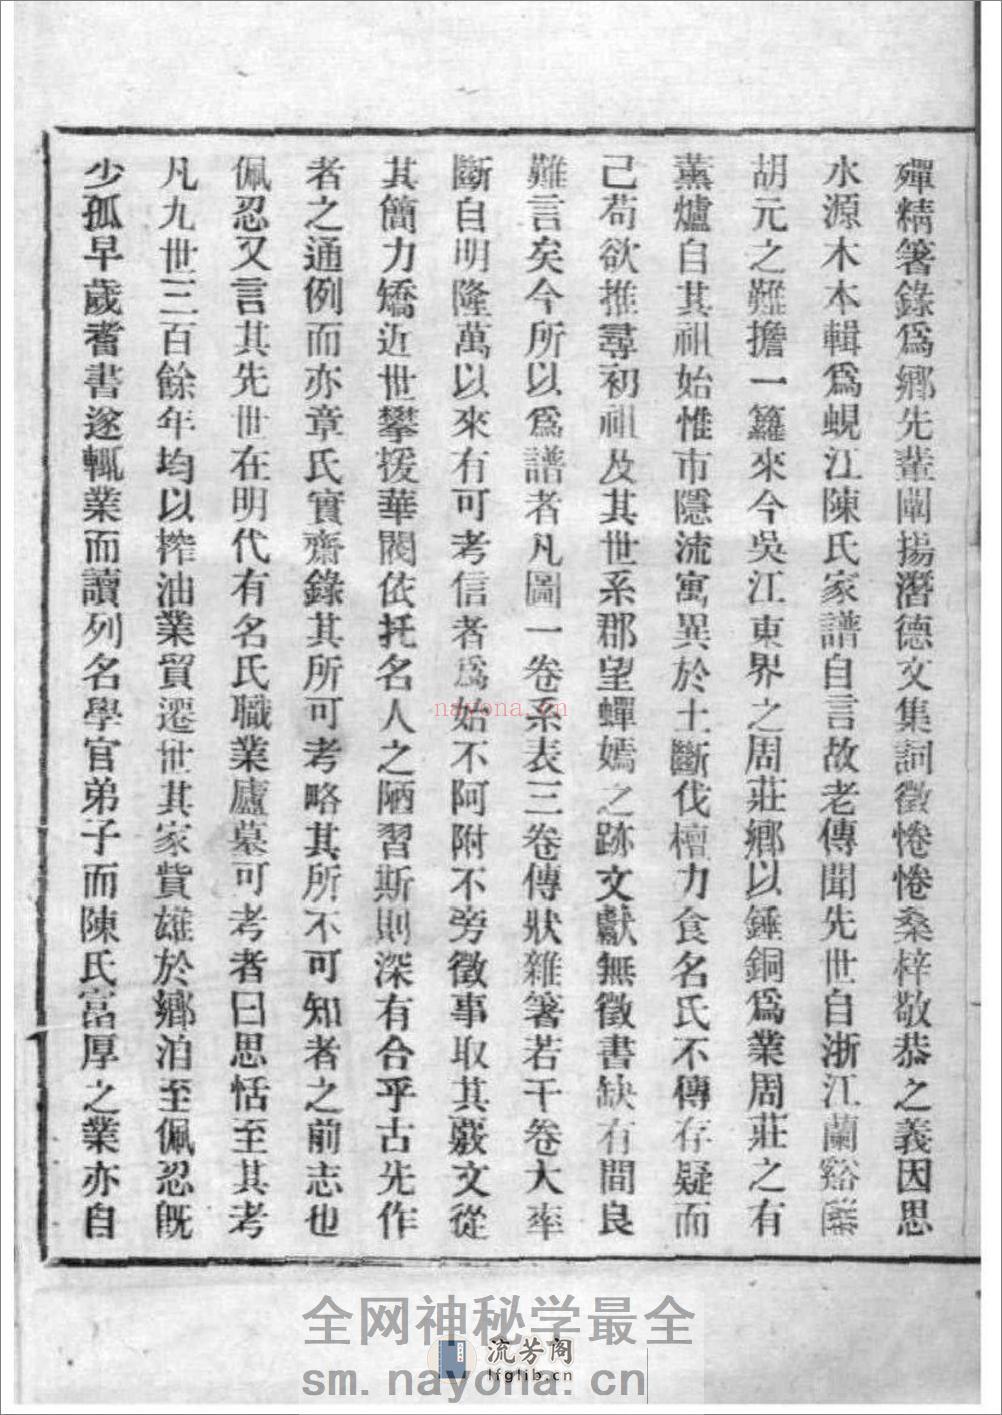 殫精箸錄爲鄉先輩闡揚潛德文集詞徵惓惓桑梓敬恭之義因思
水源木本輯爲蜆江陳氏家譜自言故老傳聞先世自浙江蘭谿
胡元之難擔一籮來今吳江東界之周莊鄉以錘銅爲業周莊之有
薰爐自其祖始惟市隱流寓異於土斷伐檀力食名氏不傳存疑而
已苟欲推尋初祖及其世系郡望蟬嫣之跡文獻無徵書缺有間良
難言矣今所以爲譜者凡圖一卷系表三卷傳狀雜箸若干卷大率
斷自明隆萬以來有可考信者爲始不阿附不旁徵事取其覈文從
其簡力矯近世攀援華閥依托名人之陋習斯則深有合乎古先作
者之通例而亦章氏實齋錄其所可考略其所不可知者之前志也
佩忍又言其先世在明代有名氏職業廬墓可考者曰思恬至其考
凡九世三百餘年均以榨油業貿遷世其家貲雄於鄉洎至佩忍旣
少孤早歲耆書遂輒業而讀列名學官弟子而陳氏富厚之業亦自
nayona.cn
全网神秘学最全
流芳阁
lfglib.cn
sm.nayona.cn